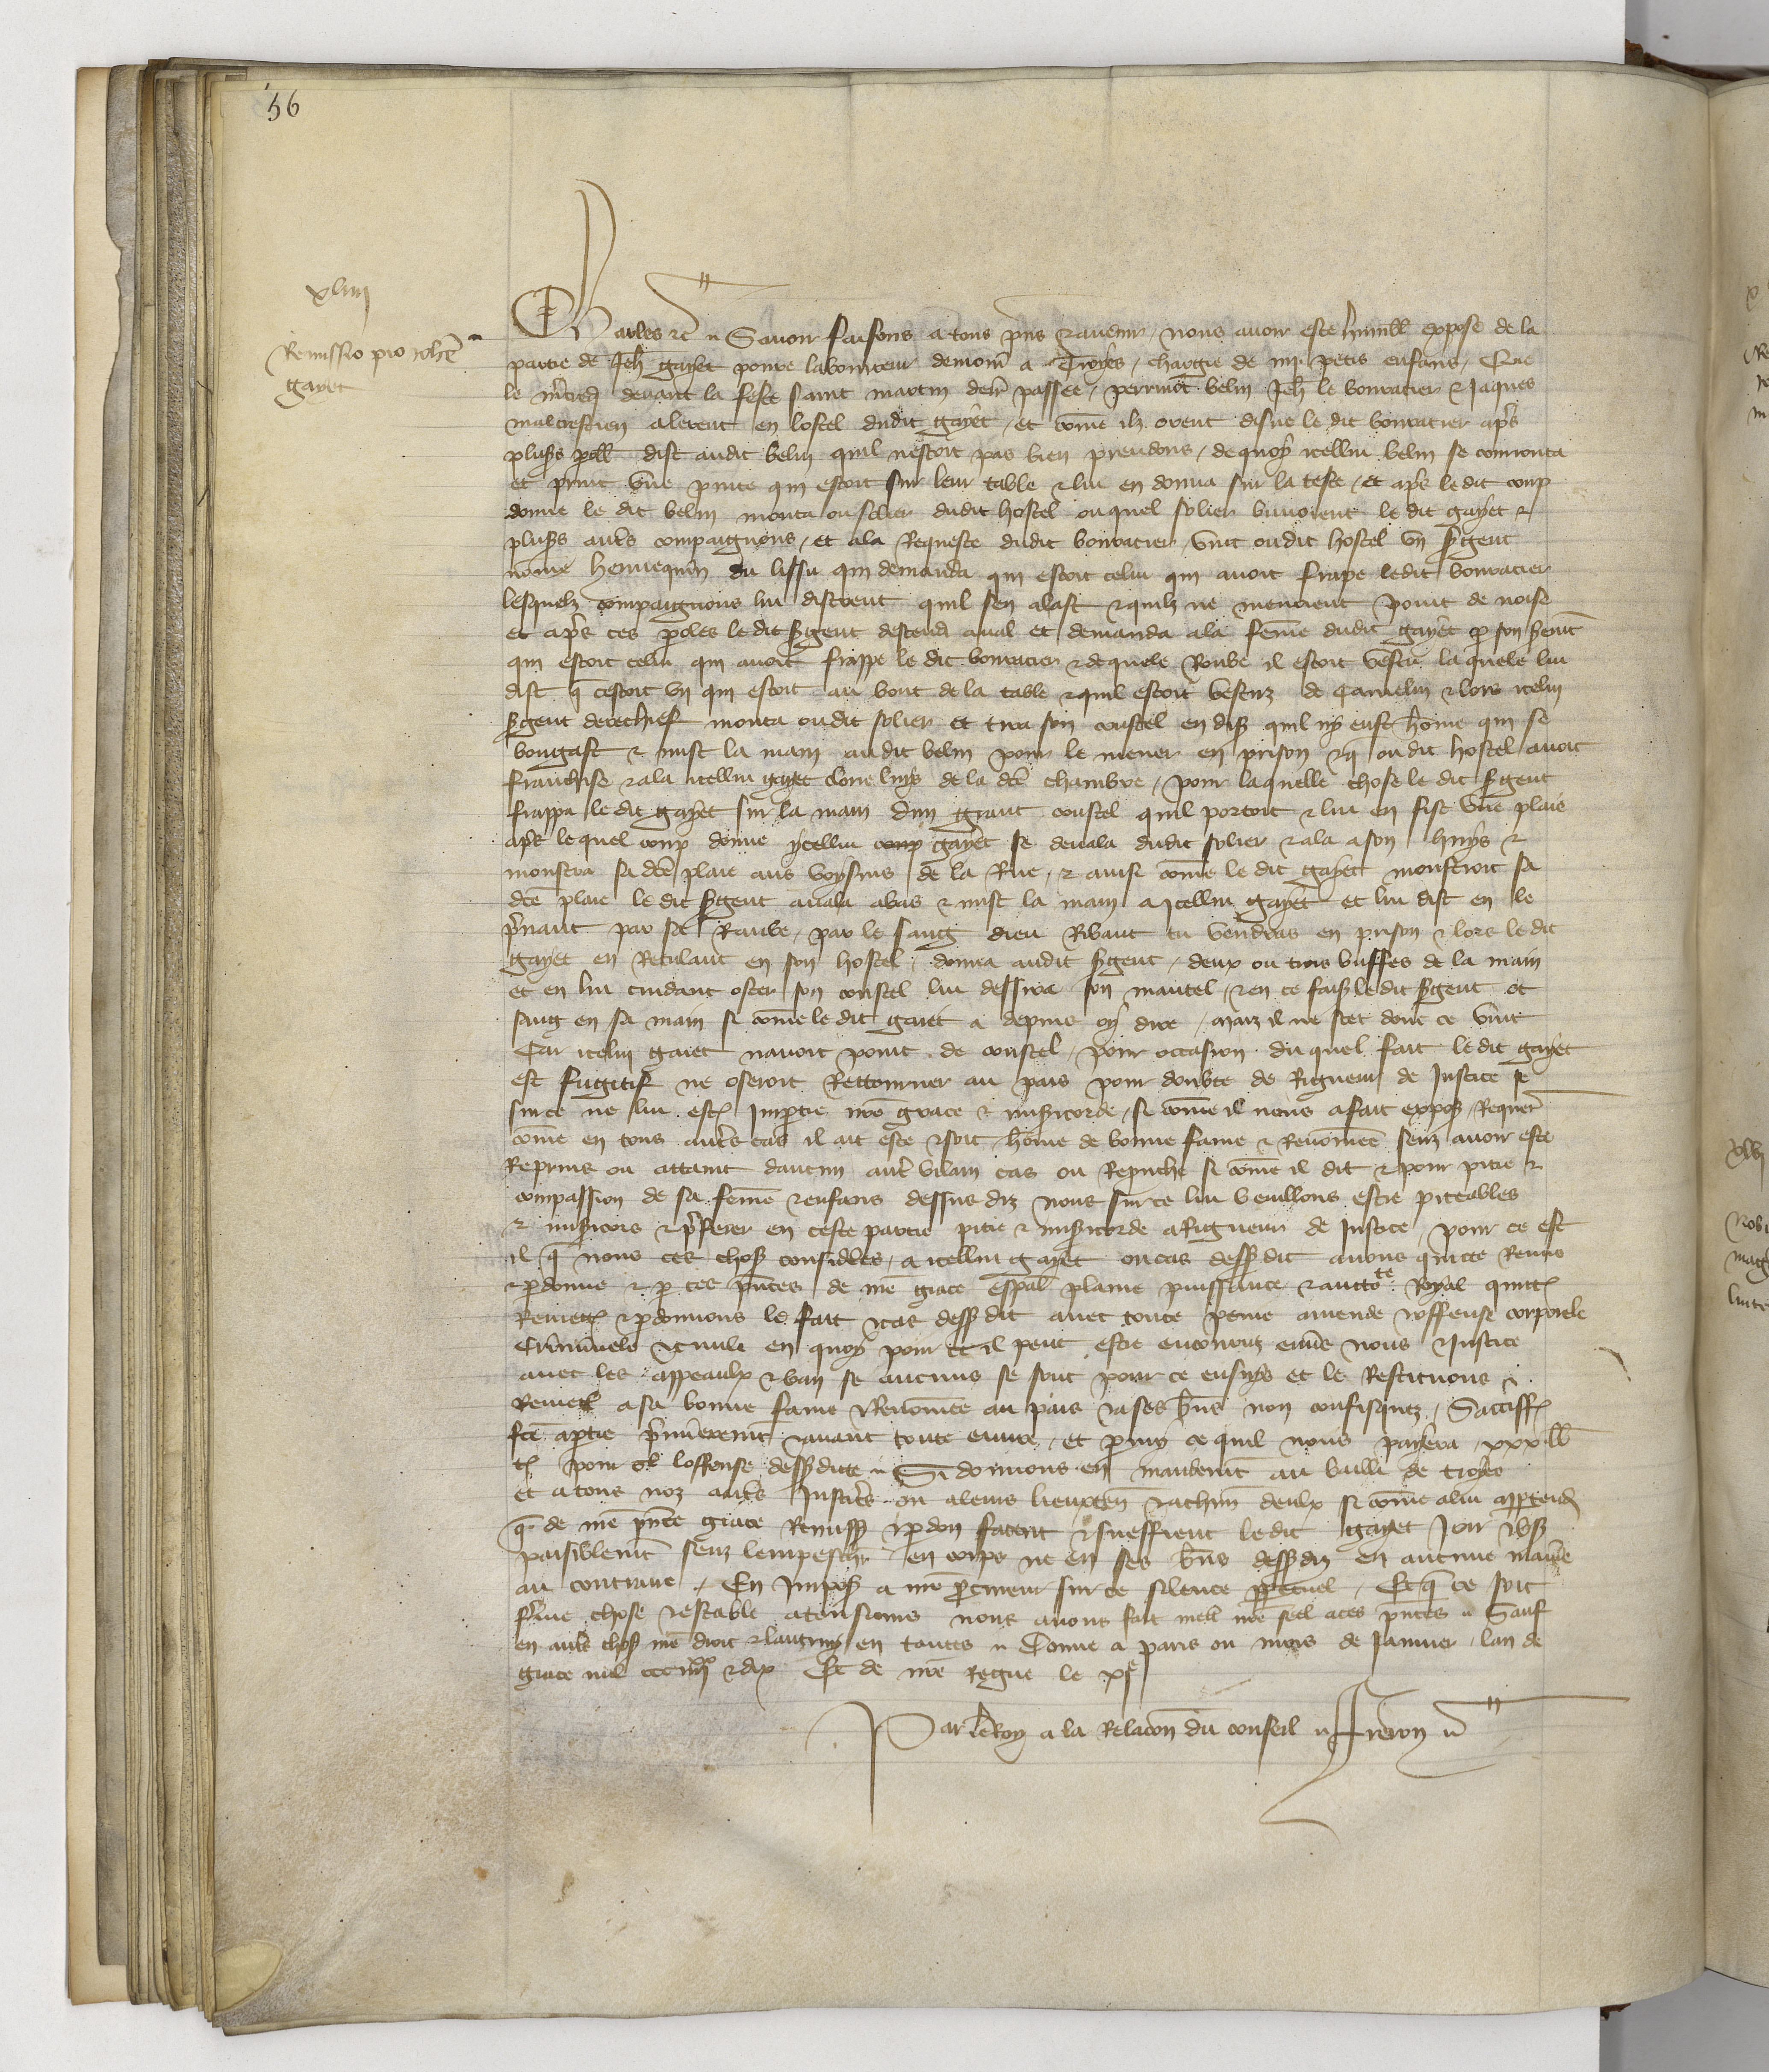 56
xliiij
Remissio pro Johe
gayet
Charles etc Savoir faisons a tous pns et avenir nous avoir este humblt expose de la
partie de Jeh gayet povre laboureur demour a Troyes chargie de iiij petis enfans Que
le mcredi devant la feste saint martin dern passee perrinot belin Jeh le bourracier et Jaques
malcrestien alerent en lostel dudit gayet et come ilz orent disne le dit bourracier apres
plusrs poll dist audit belin quil nestoit pas bien preudoms de quoy icellui belin se courrouca
et print une pinte qui estoit sur leur table et lui en donna sur la teste et apres le dit coup
donne le dit belin monta ou solier dudit hostel ou quel solier buvoient le dit gayet et
plusrs autres compaignons et a la Requeste dudit bourracier vint oudit hostel un sergent
nome hennequin du lissu qui demanda qui estoit celui qui avoit frape ledit bourracier
lesquelz compaignons lui distrent quil sen alast et quilz ne menoient point de noise
et apres ces poles le dit sergent descendi aval et demanda a la feme dudit gayet p son serment
qui estoit celui qui avoit frappe le dit bourracier et de quele Robe il estoit vestu la quele lui
dist q cestoit un qui estoit au bout de la table et quil estoit vestuz de Camelin et lors icelui
sergent derechief monta oudit solier et tira son coustel en dist quil ny eust home qui se
bougast et mist la main audit belin pour le mener en prison et q oudit hostel avoit
franchise et ala icellui gayet clorre luys de la dce chambre pour laquelle chose le dit sergent
frappa le dit gayet sur la main dun grant coustel quil portoit et lui en fist une plaie
apres lequel coup donne ycellui coup gayet se devala dudit solier et ala a son huys et
monstra sa dce plaie aus voysins de la Rue et ainsi come le dit gayet monstroit sa
dce plaie le dit sergent avala abas et mist la main a icellui gayet et lui dist en le
prenant par sa Raube par le sang dieu Ribaut tu vendras en prison et lors le dit
gayet en Reculant en son hostel donna audit sergent deux ou trois buffes de la main
et en lui cuidant oster son coustel lui dessira son mantel et en ce fais ledit sergent ot
sang en sa main si come le dit gaiet a depuis oy dire maiz il ne scet dont ce vint
Car icelui gaiet navoit point de coustel pour occasion du quel fait le dit gayet
est fugitif ne oseroit Rettourner au pais pour doubte de Rigueur de Justice se
sur ce ne lui est Impartie nre grace et misericorde si come il nous a fait expos Requer
come en tous autres cas il ait este et soit home de bonne fame et Renomee senz avoir este
Reprins ou attaint daucun autre vilain cas ou Reprouche si come il dit et pour pitie et
compassion de sa feme et enfans dessus diz nous sur ce lui veuillons estre piteables
et misericors et preferer en ceste partie pitie et misericorde a Rigueur de Justice pour ce est
il q nous ces choses considerees a icellui gayet ou cas dessus dit avons quicte Remis
et pdonne et p ces pntes de nre grace espal plaine puissance et auctote Royal quictons
Remettons et pdonnons le fait et cas dessus dit avec toute peine amende et offense corporele
Criminele et civile en quoy pour ce il peut estre encouruz envers nous et Justice
avec les appeaulx et ban se aucuns se sont pour ce ensuys et le Restituons et
Remett a sa bonne fame et Renomee au pais et a ses biens non confisquez Satisff
fce a ptie premierement et avant toute euvre et pmy ce quil nous payera xxx ll
t pour loffense dessus dicte Si donnons en mandement au bailli de troyes
et a tous noz autres Justiciers ou a leurs lieuxten et a chun deulx si come a lui apptend
q de nre pnte grace Remission et pdon facent et sueffrent ledit gayet Joir et user
paisiblement senz lempeschr en corps ne en ses biens dessus diz en aucune maniere
au contraire En Impos a nre pcureur sur ce silence ppetuel Et q ce soit
ferme chose et estable a tousjours nous avons fait mett nre seel a ces pntes Sauf
en autres choses nre droit et lautruy en toutes Donne a paris ou mois de Janvier lan de
grace mil cccc et dix Et de nre Regne le xxxe
Par le Roy a la Relacon du conseil Freron